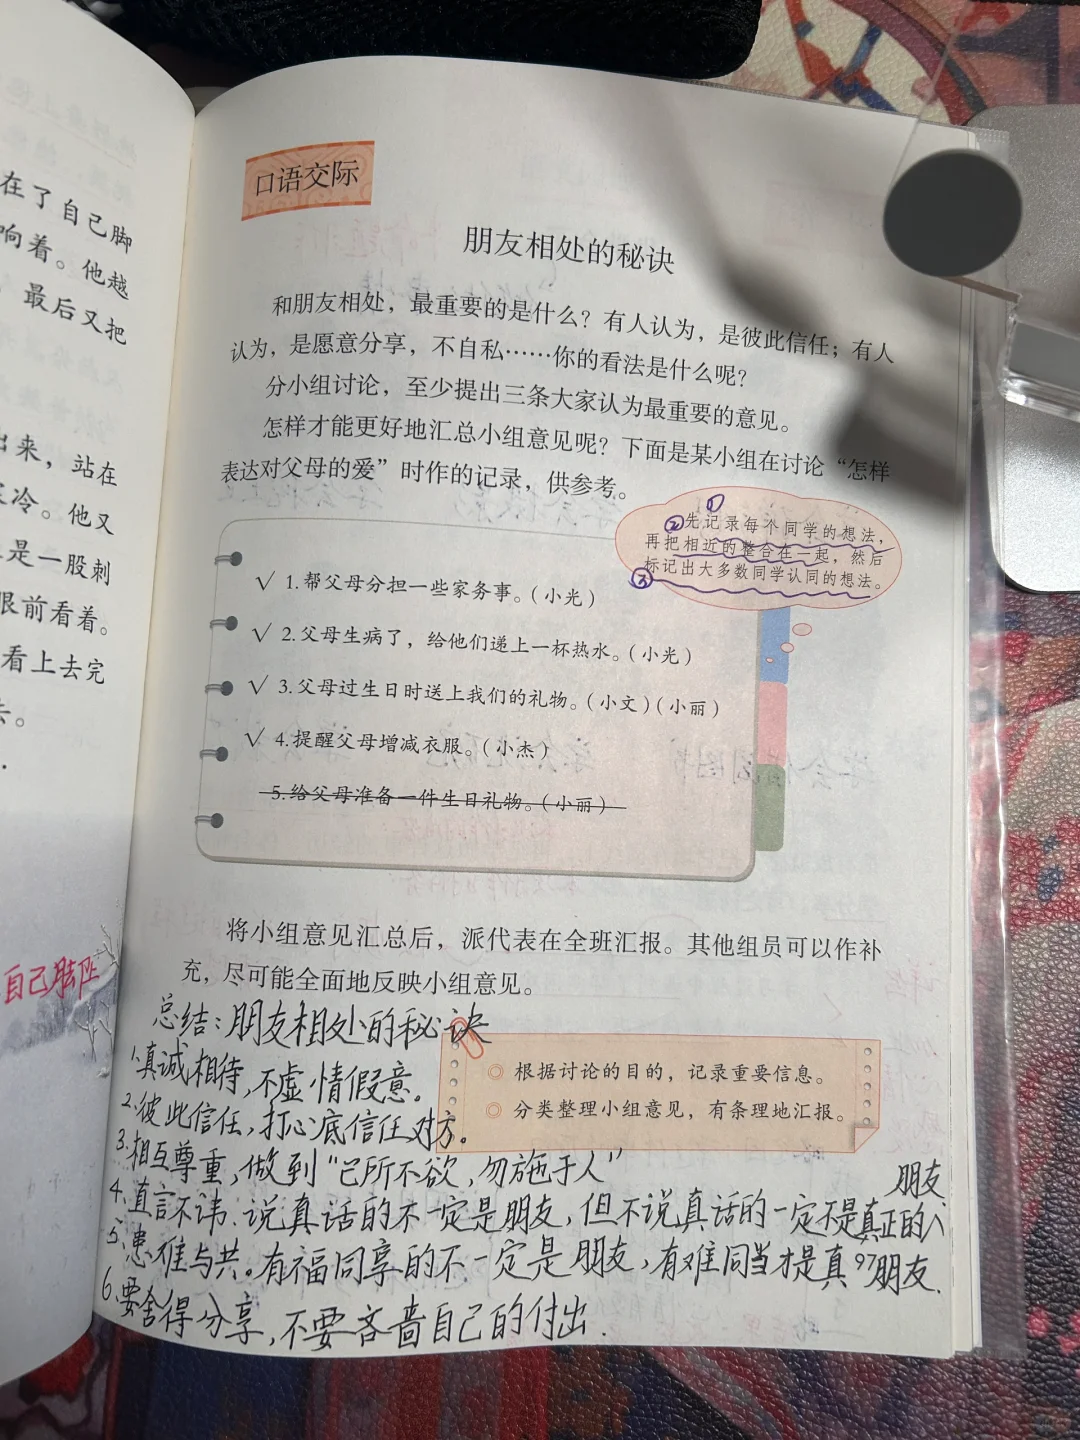 在了自己脚
响着。他越
最后又把
出来，站在
冷。他又
是一股刺
眼前看着。
看上去完
去。
自己脚
口语交际
朋友相处的秘诀
和朋友相处，最重要的是什么？有人认为，是彼此信任；有人
认为，是愿意分享，不自私……你的看法是什么呢？
分小组讨论，至少提出三条大家认为最重要的意见。
怎样才能更好地汇总小组意见呢？下面是某小组在讨论“怎样
表达对父母的爱”时作的记录，供参考。
①
②先记录每个同学的想法，
再把相近的整合在一起，然后
③标记出大多数同学认同的想法。
√ 1.帮父母分担一些家务事。（小光）
√ 2.父母生病了，给他们递上一杯热水。（小光）
√ 3.父母过生日时送上我们的礼物。（小文）（小丽）
√ 4.提醒父母增减衣服。（小杰）
5.给父母准备一件生日礼物。（小丽）
将小组意见汇总后，派代表在全班汇报。其他组员可以作补
充，尽可能全面地反映小组意见。
◎ 根据讨论的目的，记录重要信息。
◎ 分类整理小组意见，有条理地汇报。
总结：朋友相处的秘诀
1.真诚相待，不虚情假意。
2.彼此信任，打心底信任对方。
3.相互尊重，做到“己所不欲，勿施于人”
朋友
4.直言不讳.说真话的不一定是朋友，但不说真话的一定不是真正的
5.患难与共。有福同享的不一定是朋友，有难同当才是真的朋友.
6.要舍得分享，不要吝啬自己的付出.